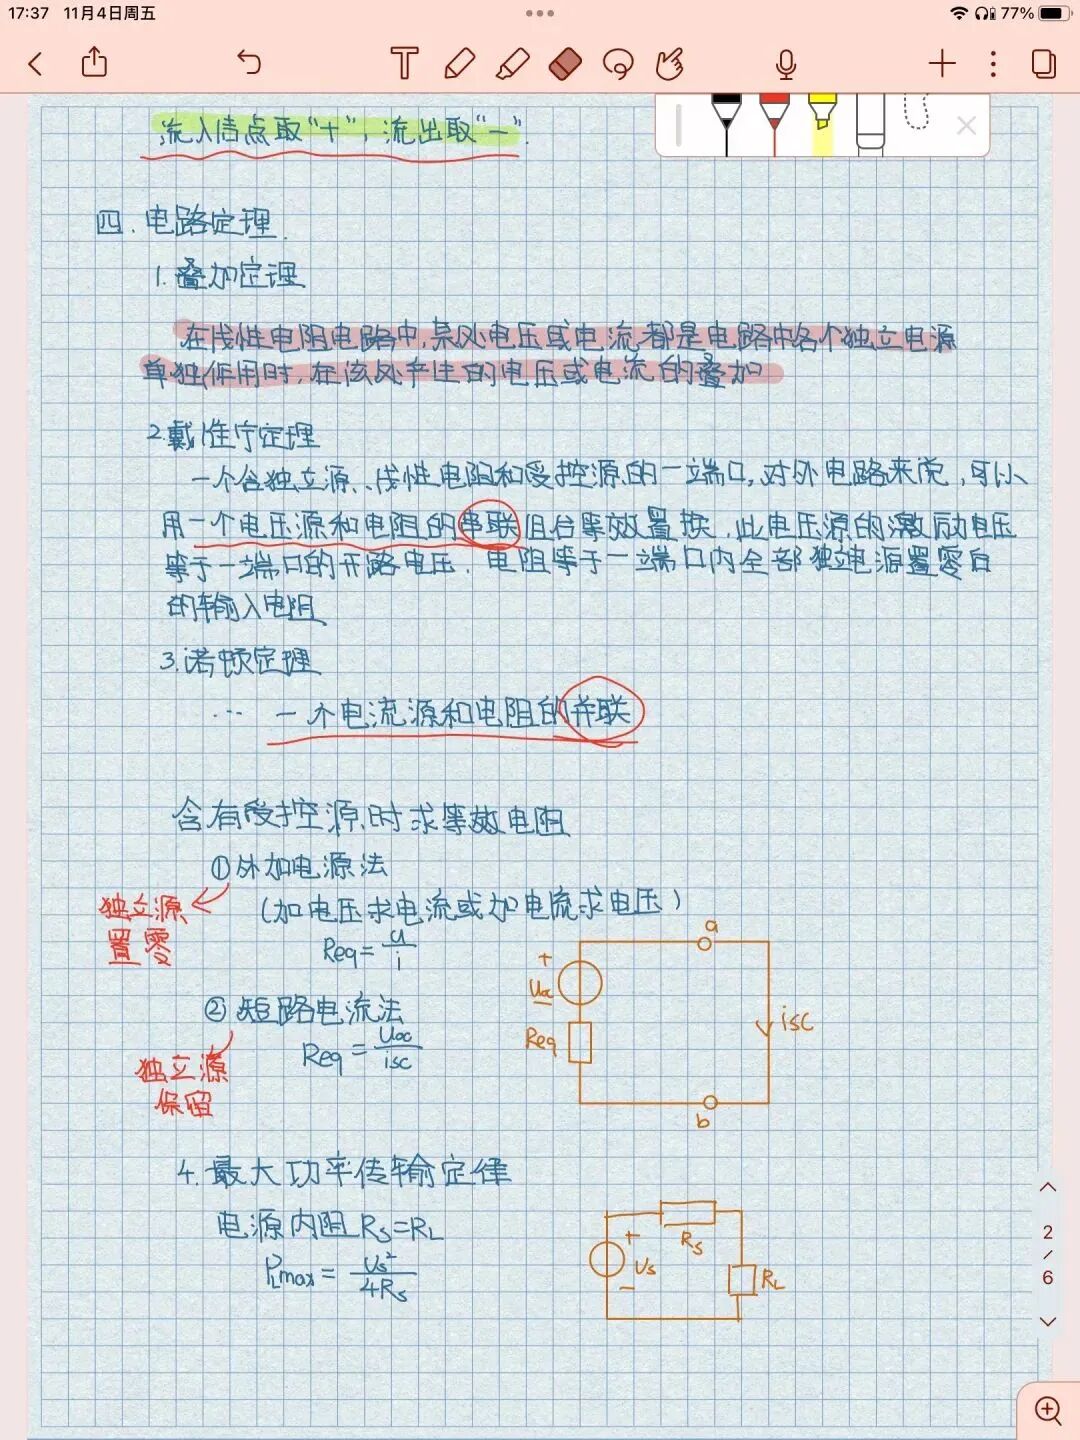 17:37 11月4日周五
77%
流入结点取“+”，流出取“-”.
四. 电路定理
1. 叠加定理
在线性电阻电路中,某处电压或电流都是电路中各个独立电源
单独作用时,在该处产生的电压或电流的叠加
2.戴维宁定理
一个含独立源、线性电阻和受控源的一端口,对外电路来说,可以
用一个电压源和电阻的串联组合等效置换,此电压源的激励电压
等于一端口的开路电压,电阻等于一端口内全部独立电源置零后
的输入电阻
3.诺顿定理
... 一个电流源和电阻的并联
含有受控源时求等效电阻
①外加电源法
独立源
置零
(加电压求电流或加电流求电压)
Req=u/i
②短路电流法
Req=uoc/isc
独立源
保留
a
+
Uoc
-
Req
isc
b
4.最大功率传输定律
电源内阻Rs=RL
PLmax=Us²/4Rs
Rs
+
Us
-
RL
2
/
6